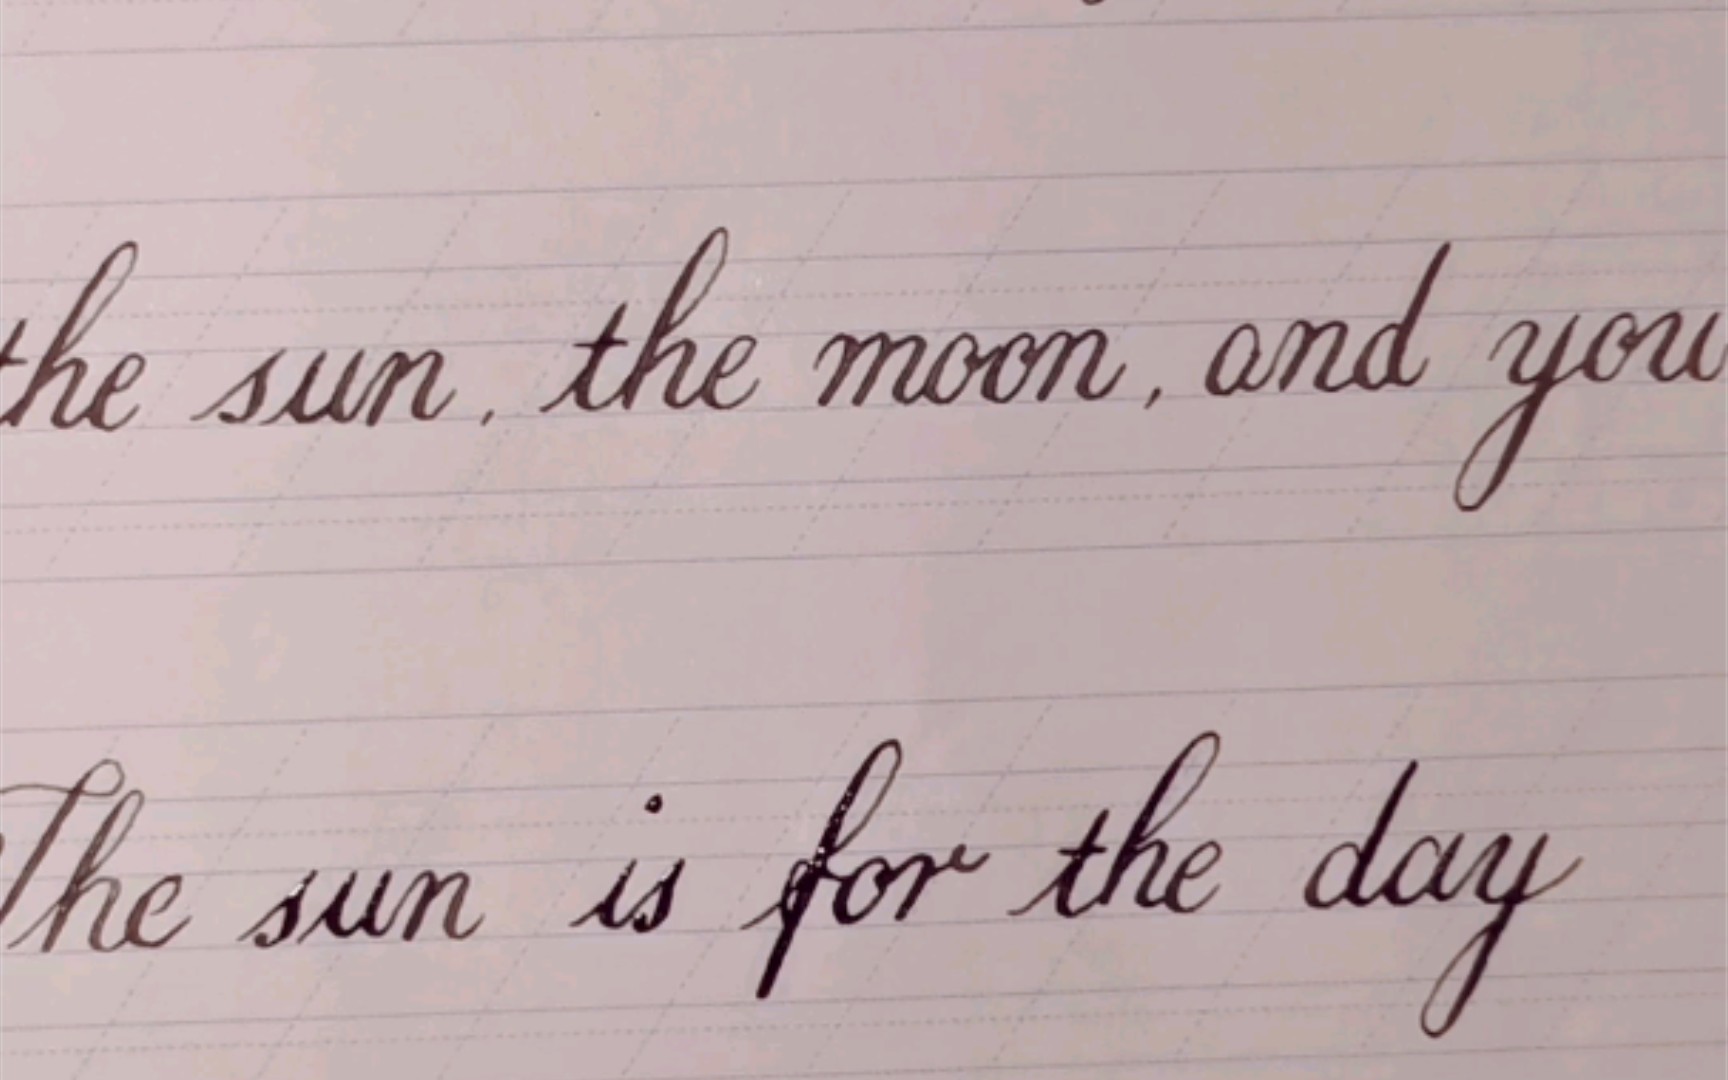 the sun, the moon, and you
The sun is for the day